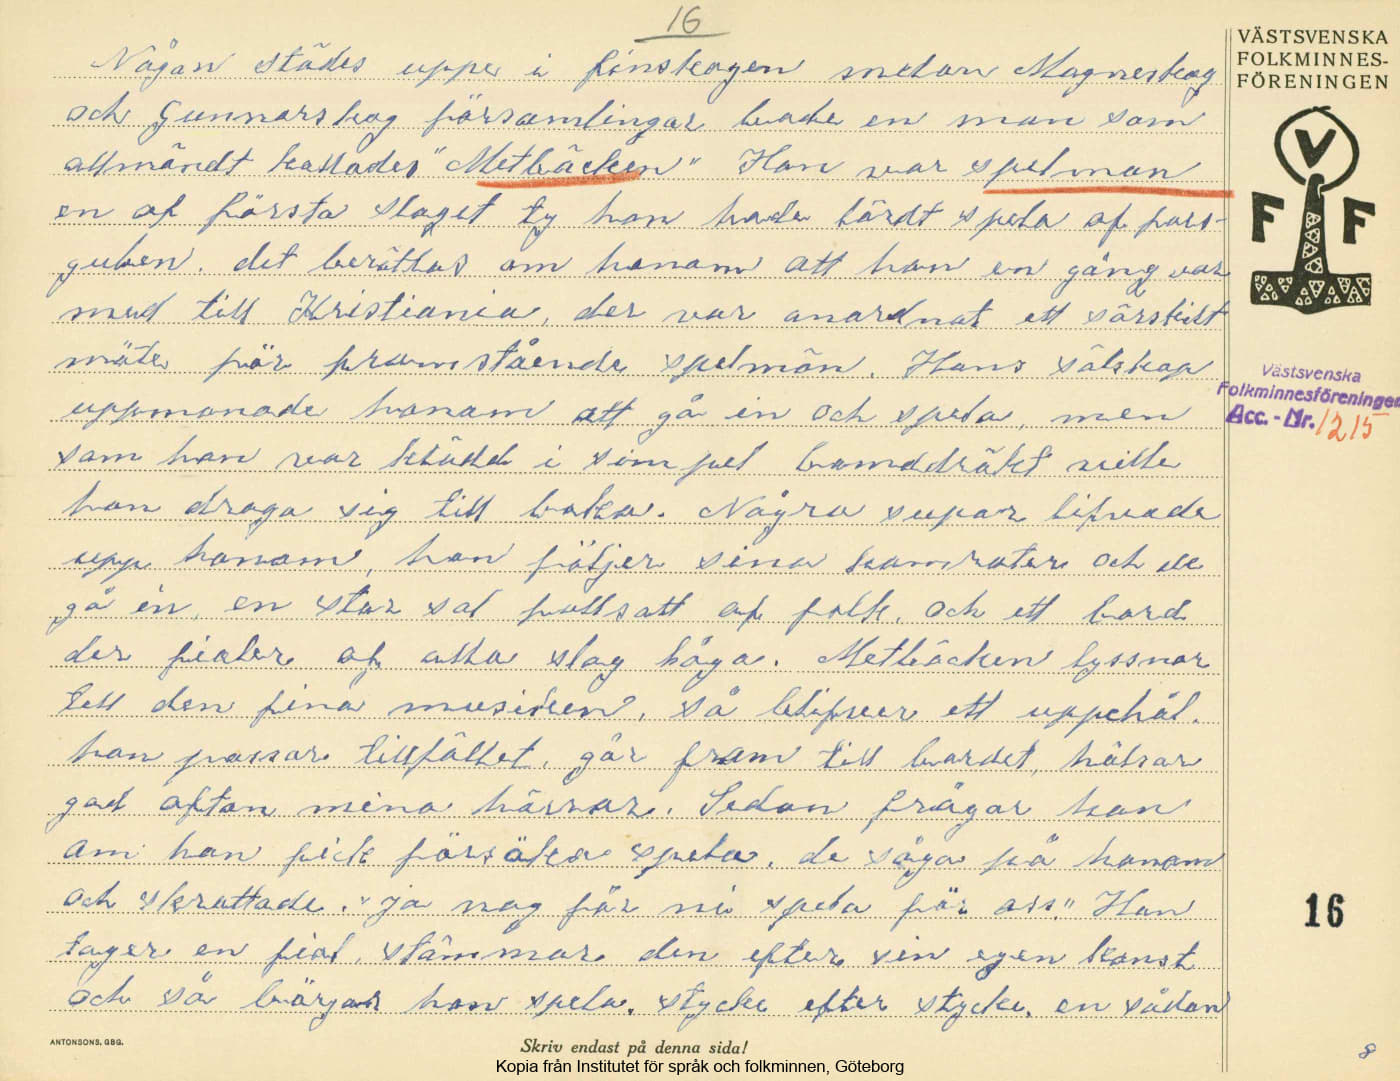 16
VÄSTSVENSKA
FOLKMINNES-
FÖRENINGEN
V
F F
Någon städes uppe i finskogen melan Magneskog
och Gunnarskog församlingar bode en man som
allmändt kallades "Metbäcken" Han var spelman
en af första slaget ty han hade lärdt spela af fors-
gubben. det berättas om honom att han en gång var
med till Kristiania, der var anordnat ett särskilt
möte för framstående spelmän. Hans sälskap
uppmanade honom att gå in och spela, men
som han var klädd i simpel bomddräkt ville
han draga sig till baka. Några supar lifvade
upp honom, han följer sina kamrater och de
gå in, en stor sal fullsatt af folk, och ett bord
der fioler af alla slag låga. Metbäcken lyssnar
till den fina musiken, så blifver ett uppehål.
han passar tillfället, går fram till bordet, hälsar
god afton mina härrar. Sedan frågar han
om han fick försöka spela, de såga på honom
och skrattade. "ja nog får ni spela för oss." Han
tager en fiol, stämmar den efter sin egen konst
och så börjar han spela. stycke efter stycke, en sådan
Västsvenska
Folkminnesföreningen
Acc. - Nr. 1215
16
ANTONSONS, GBG.
Skriv endast på denna sida!
8
Kopia från Institutet för språk och folkminnen, Göteborg